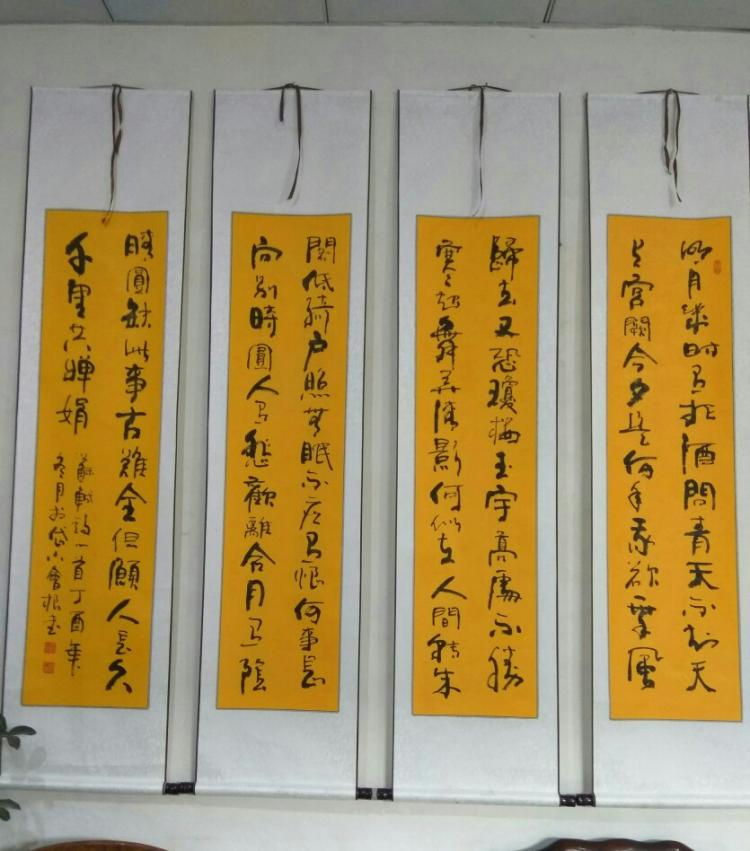 明月幾時有把酒問青天不知天
上宮闕今夕是何年我欲乘風
歸去又恐瓊樓玉宇高處不勝
寒起舞弄清影何似在人間轉朱
閣低綺户照無眠不應有恨何事長
向別時圓人有悲歡離合月有陰
晴圓缺此事古難全但願人長久
千里共嬋娟
蘇軾詞一首丁酉年
冬月於岱會根書